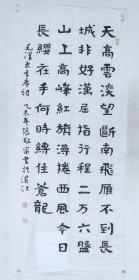 天高雲淡望斷南飛雁不到長
城非好漢屈指行程二万六盤
山上高峰紅旗漫捲西風今日
長纓在手何時縛住蒼龍
毛澤東主席詞 乙未年張